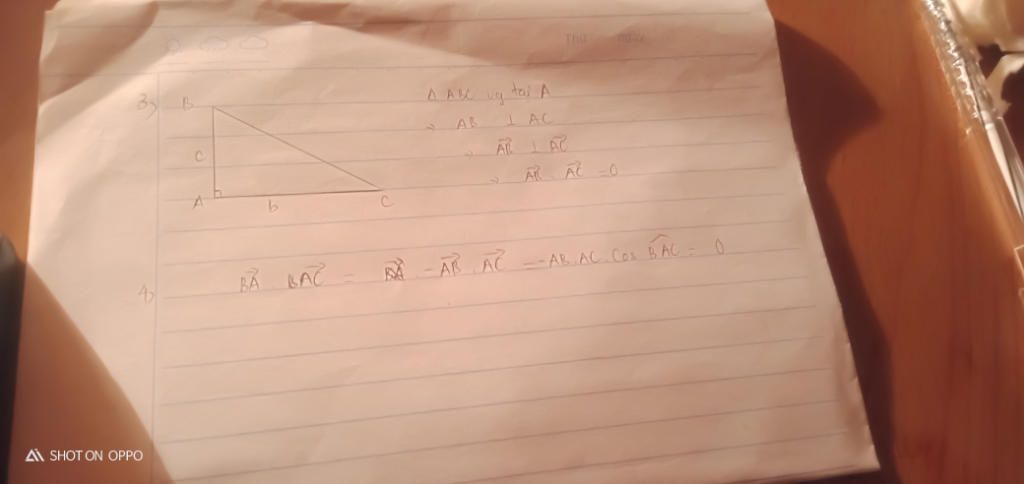 Thứ
3)
B
Δ ABC vg tại A
→ AB ⊥ AC
C
→ AB⃗ ⊥ AC⃗
→ AB⃗ . AC⃗ = 0
A
b
C
4)
BA⃗ . AC⃗ = - AB⃗ . AC⃗ = - AB. AC. Cos BAC = 0
SHOT ON OPPO